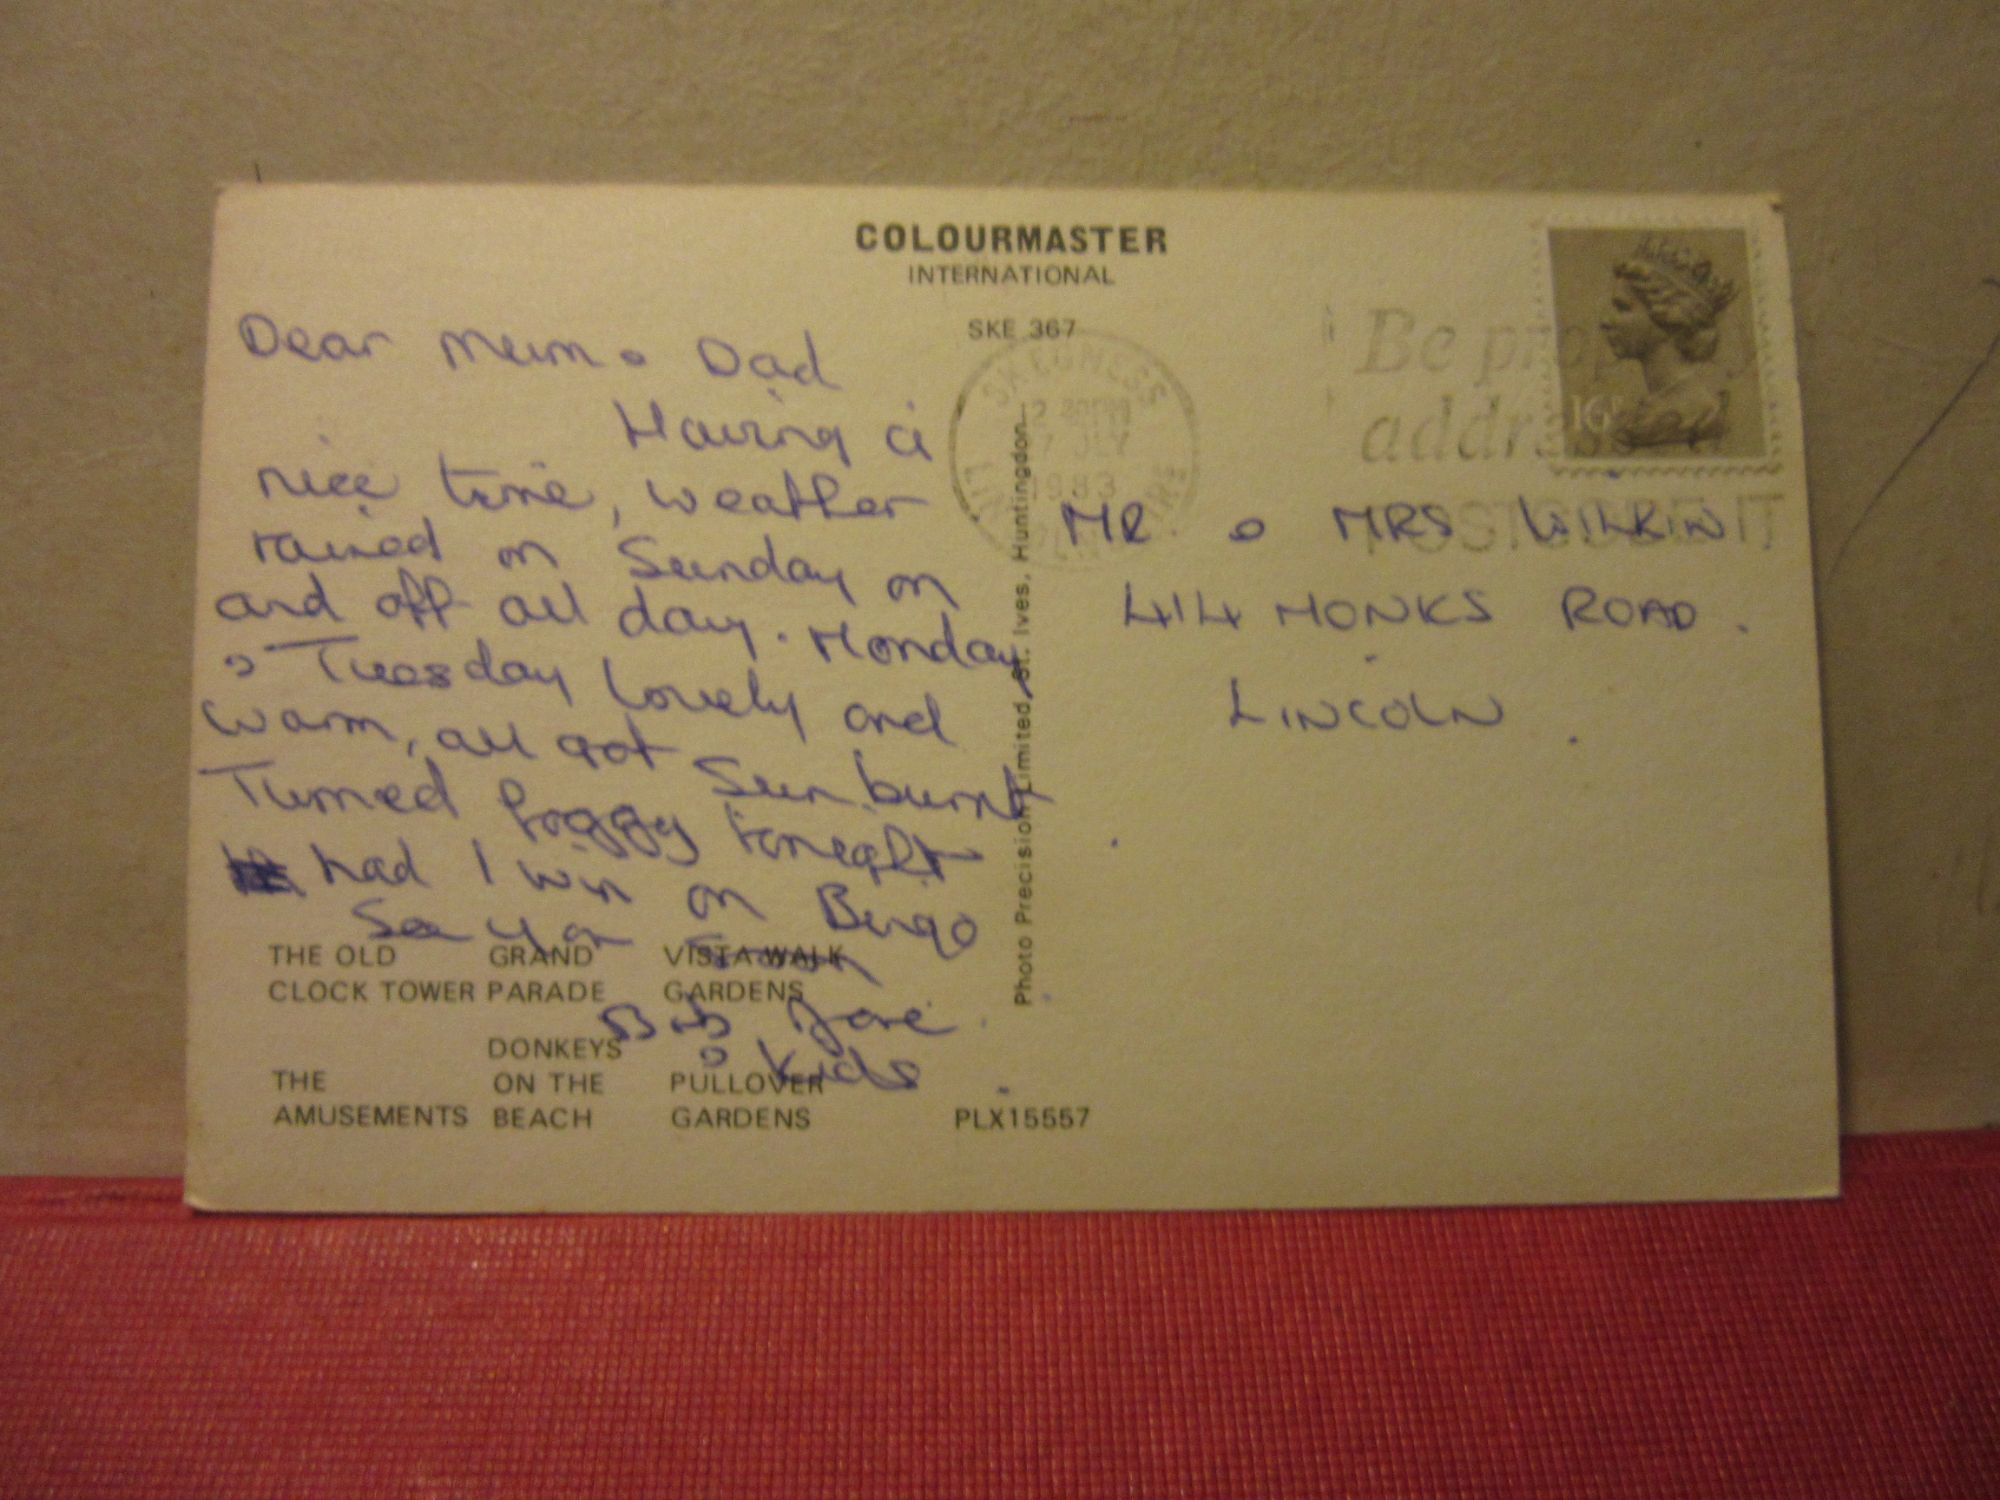 COLOURMASTER
INTERNATIONAL
SKE 367
Dear Mum & Dad
Having a
nice time, weather
rained on Sunday on
and off all day. Monday
& Tuesday lovely and
warm, all got Sunburnt
Turned foggy tonight
had 1 win on Bingo
See you soon
Bob Jane
& Kids
THE OLD
CLOCK TOWER
GRAND
PARADE
VISTA WALK
GARDENS
THE
AMUSEMENTS
DONKEYS
ON THE
BEACH
PULLOVER
GARDENS
PLX15557
Photo Precision Limited, St. Ives, Huntingdon
SKEGNESS
LINCOLNSHIRE
7 JLY
1983
Be properly
addressed
POSTCODE IT
MR & MRS WILKIN
414 MONKS ROAD.
LINCOLN.